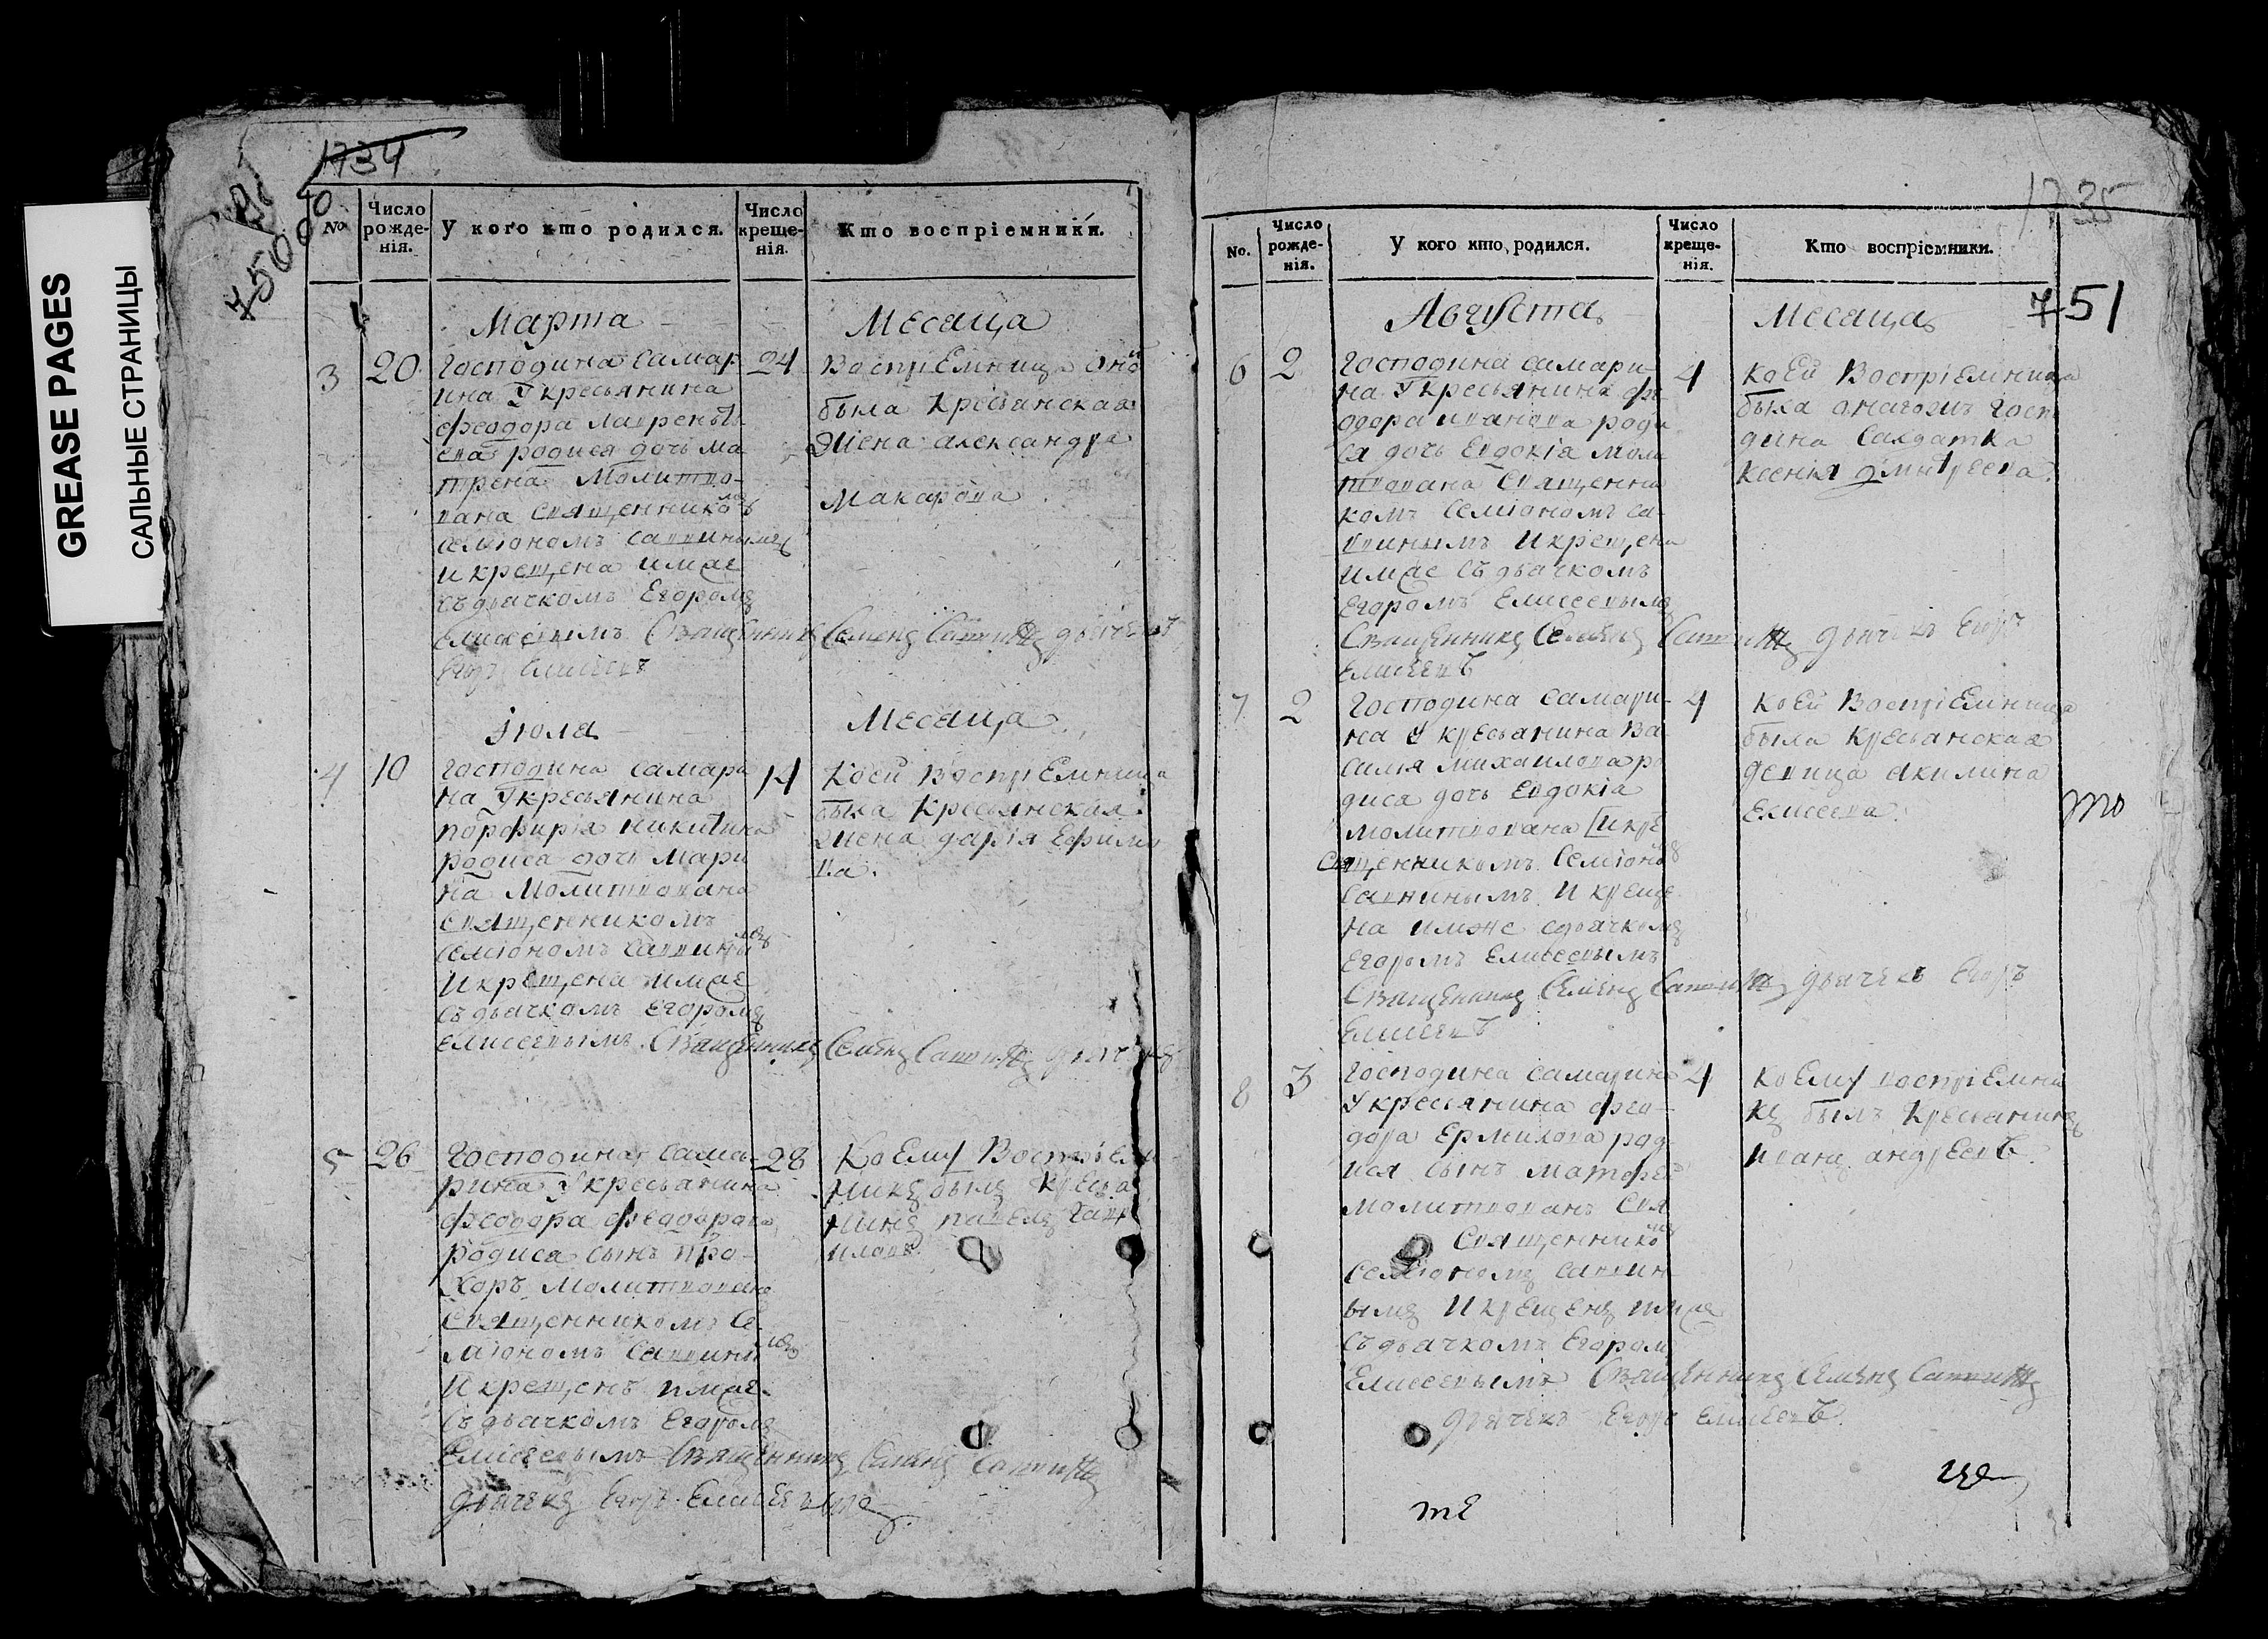 GREASE PAGES
САЛЬНЫЕ СТРАНИЦЫ
1734
750
No
Число рожде-нія.
У кого кто родился.
Число креще-нія.
Кто воспріемники.
Марта
Месаца
3
20
24
Господина самар
ина У кресьянина
феодора лаврентъ
ева родися дочь ма
трена Молитво-
вана священником
семіономъ саввинымъ
и крещена имже
съ дьячкомъ Егоромъ
Елисеевымъ Священникъ Семенъ Саввинъ дьячекъ
Егоръ Елисеевъ
Воспріемница оной
была Кресьянская
Жена александра
Макарова
Іюля
Месаца
4
10
14
господина самари
на У кресьянина
порфирія никитина
родиса дочь Мари
на Молитвована
священникомъ
семіономъ саввинымъ
И крещена имже
съ дьячкомъ Егоромъ
Елисеевымъ Священникъ Семенъ Саввинъ дьячекъ
Коей Воспріемница
была Кресьянская
Жена дарія Ефимо
ва.
5
26
28
Господина сама-
рина У кресьанина
феодора феодорова
родиса сынъ про-
хоръ молитвованъ
священникомъ Се
міономъ Саввины
И крещенъ имже
съ дьачкомъ Егоромъ
Елисеевымъ Священникъ Семенъ Саввинъ
дьячекъ Егоръ Елисеевъ
Коему Воспріем
никъ былъ Кресьа
нинъ павелъ гавр
иловъ
1735
No.
Число рожде-нія.
У кого кто родился.
Число креще-нія.
Кто воспріемники.
751
Августа
Месаца
6
2
4
Господина самари-
на У кресьянина фе
одора иванова роди
ся дочь Евдокіа моли
твована Священни
комъ Семіономъ са-
ввинымъ И крещена
имже съ дьачкомъ
Егоромъ Елисеевымъ
Священникъ Семенъ Саввинъ дьячекъ Егоръ
Елисеевъ
коей Воспріемница
была онагожъ госпо
дина Салдатка
Ксенія дмитреева.
7
2
4
Господина самари-
на У кресьанина Ва
силія михаилова ро
диса дочь Евдокіа
молитвована И кре
священникомъ Семіоном
Саввинымъ И креще
на имже сдьачкомъ
Егоромъ Елисеевымъ
Священникъ Семенъ Саввинъ дьячекъ Егоръ
Елисеевъ
коей Воспріемница
была Кресьанская
девица Акилина
Елисеева.
то
8
3
4
Господина самарина
У кресьянина фео-
дора Ермилова род
ися сынъ матфей
молитвованъ Свя
Священником
Семіономъ саввин
ымъ И крещенъ имже
съ дьачкомъ Егором
Елисеевымъ Священникъ Семенъ Саввинъ
дьячекъ Егоръ Елисеевъ.
коему воспріемни
къ былъ Кресьанинъ
иванъ андреевъ.
те